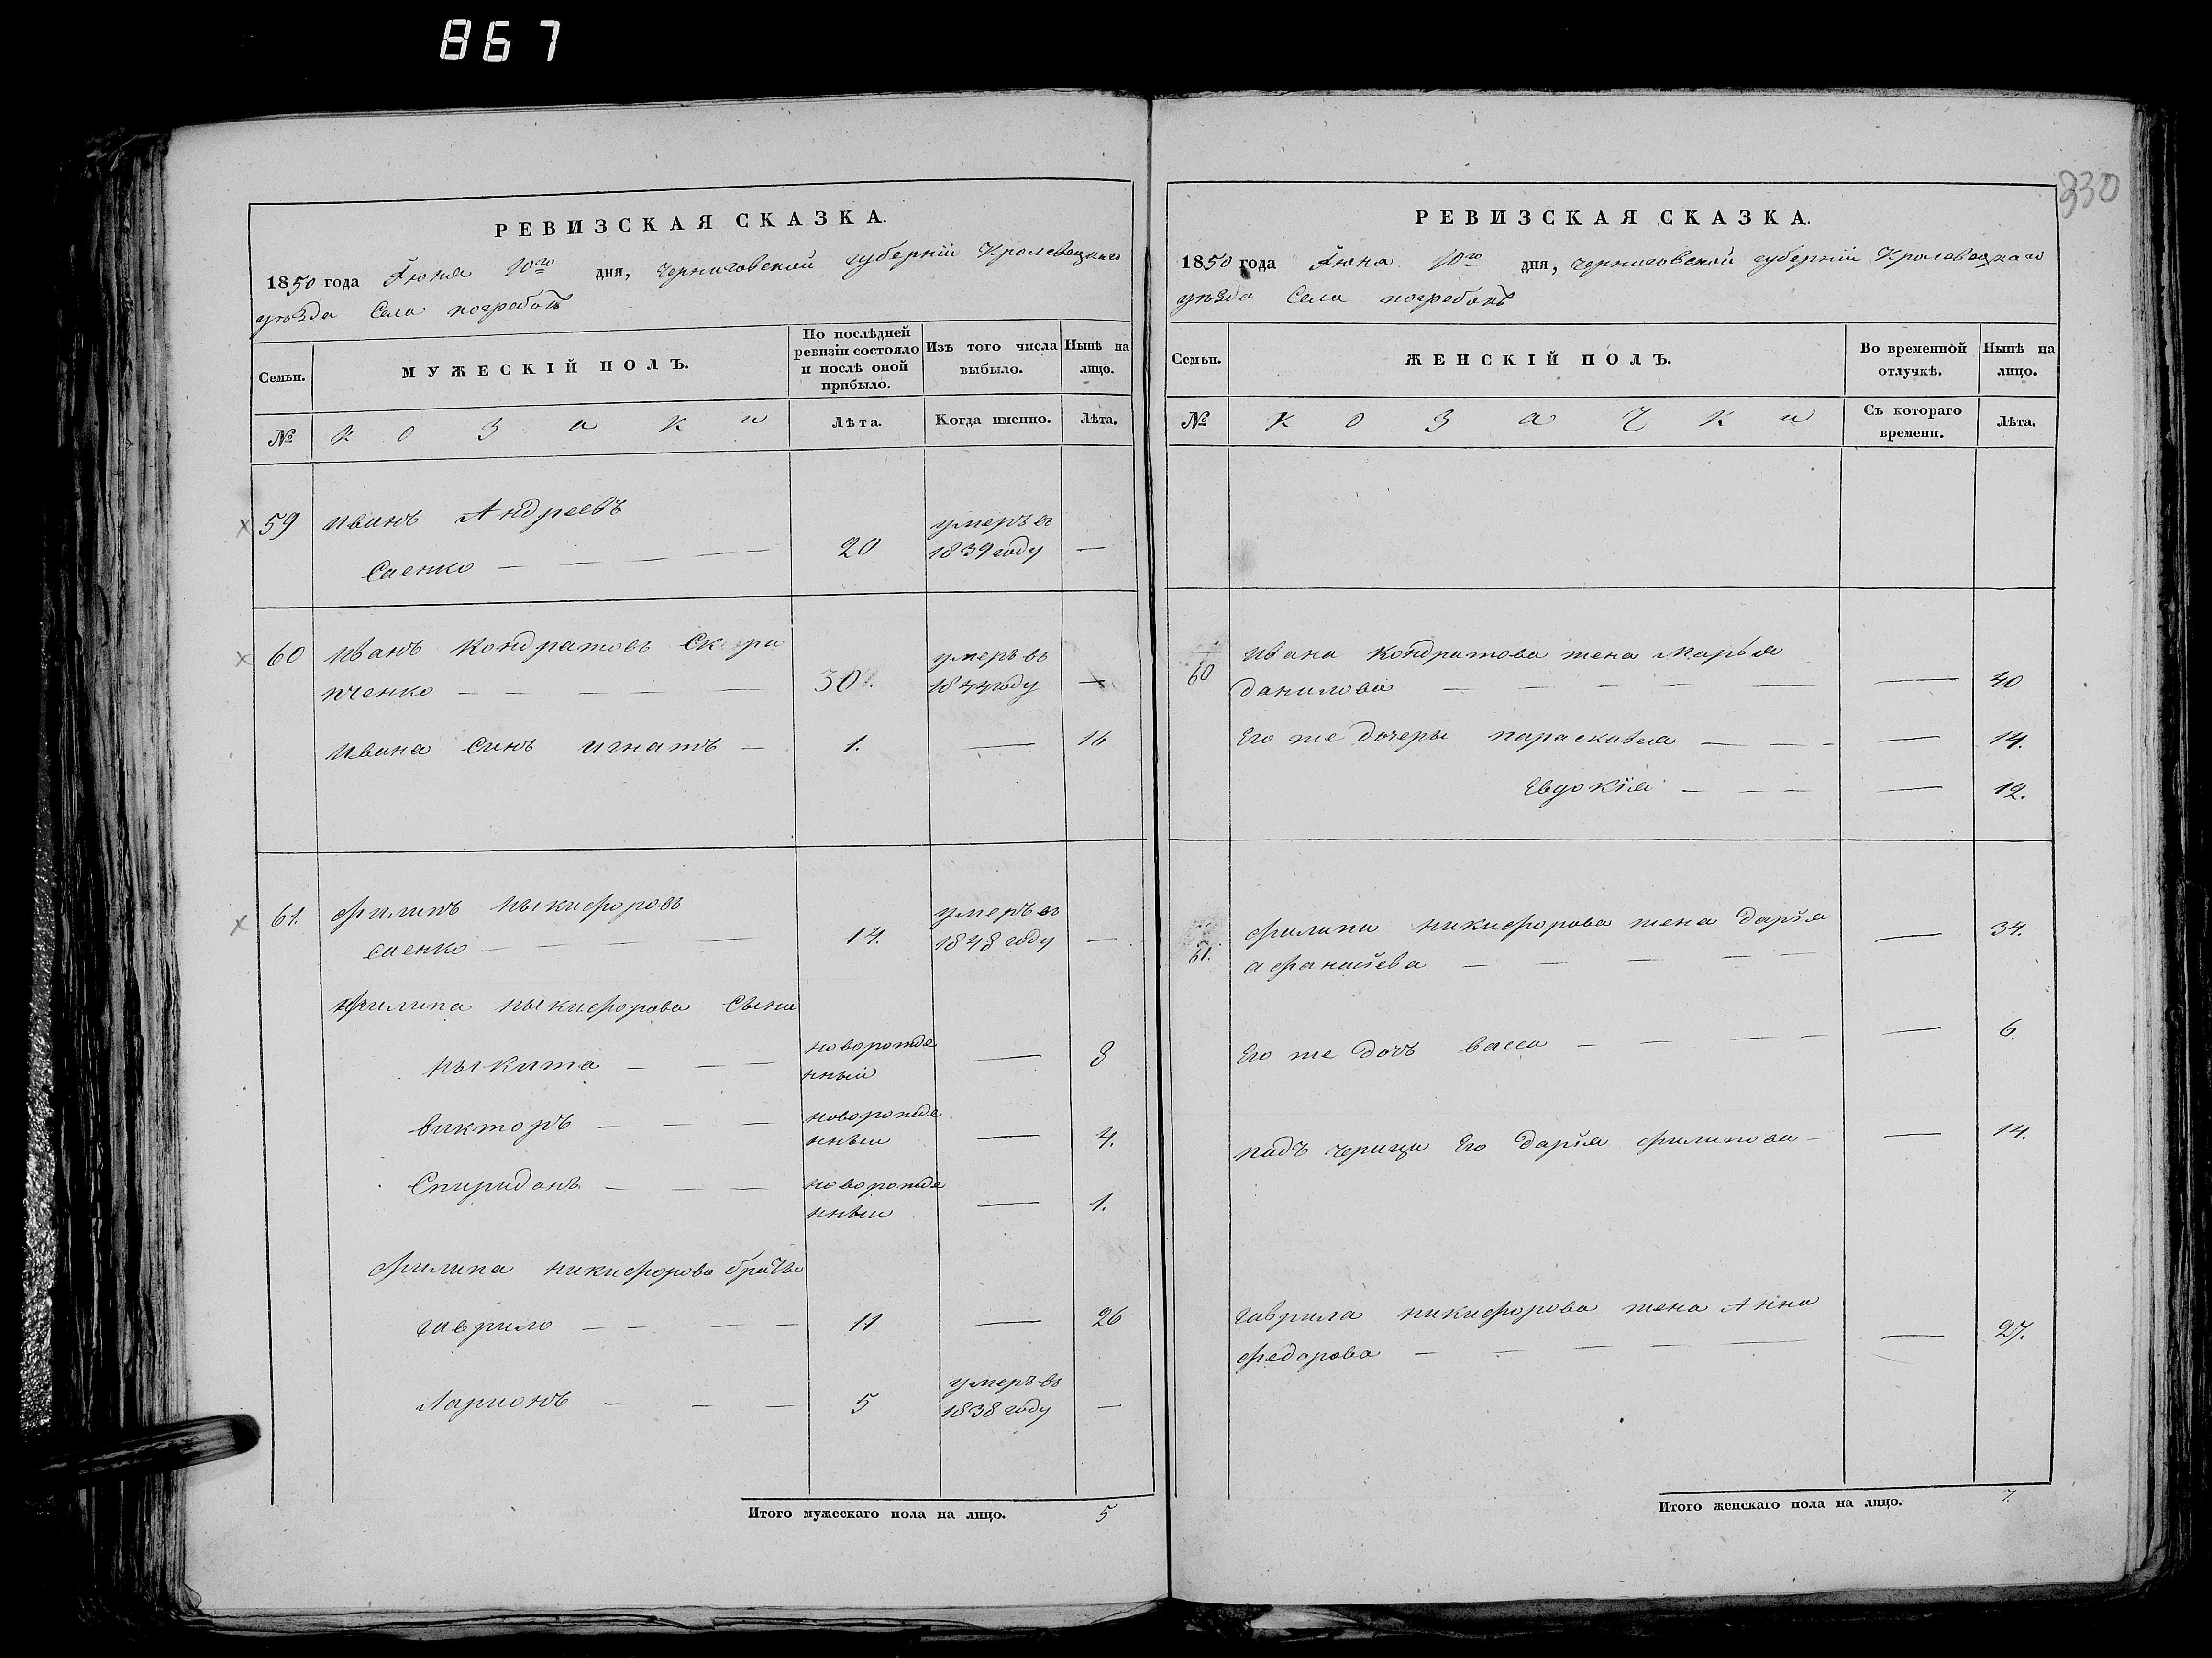 867
330
РЕВИЗСКАЯ СКАЗКА.
1850 года Іюня 10го дня, черниговской губерніи Кролевецкаго
уѣзда Села погребокъ
Семьи.
МУЖЕСКІЙ ПОЛЪ.
По послѣдней ревизіи состояло и послѣ оной прибыло.
Изъ того числа выбыло.
Нынѣ на лицо.
№
козаки
Лѣта.
Когда именно.
Лѣта.
59 иванъ Андреевъ умеръ въ
Саенко — — — — 20 1839 году —
60 иванъ Кондратовъ Скри умеръ въ
пченко — — — — — 30. 1844 году —
ивана синъ игнатъ — 1. — 16
61. филипъ ныкифоровъ умеръ въ
саенко — — — — 14. 1848 году —
филипа ныкифорова сыны
ныкита — — — новорожде нный — 8
викторъ — — — новорожде нный — 4.
Спиридонъ — — — новорожде нный — 1.
филипа никифорова братья
гаврило — — — — 11 — 26
Ларионъ — — — 5 умеръ въ 1838 году —
Итого мужескаго пола на лицо. 5
РЕВИЗСКАЯ СКАЗКА.
1850 года Іюна 10го дня, черниговской губерніи Кролевецкаго
уѣзда Села погребокъ
Семьи.
ЖЕНСКІЙ ПОЛЪ.
Во временной отлучкѣ.
Нынѣ на лицо.
№
козачки
Съ котораго времени.
Лѣта.
60 ивана Кондратова жена Марья
данилова — — — — — — 40
Его же дочеры параскивея — — — — 14.
Евдокія — — — — 12.
61. филипа никифорова жена Дарія
афанасіева — — — — — — 34.
Его же дочь васса — — — — — 6.
падъ черица Его Дарія филипова — — 14.
гаврила никифорова жена Анна
федорова — — — — — — 27.
Итого женскаго пола на лицо. 7.